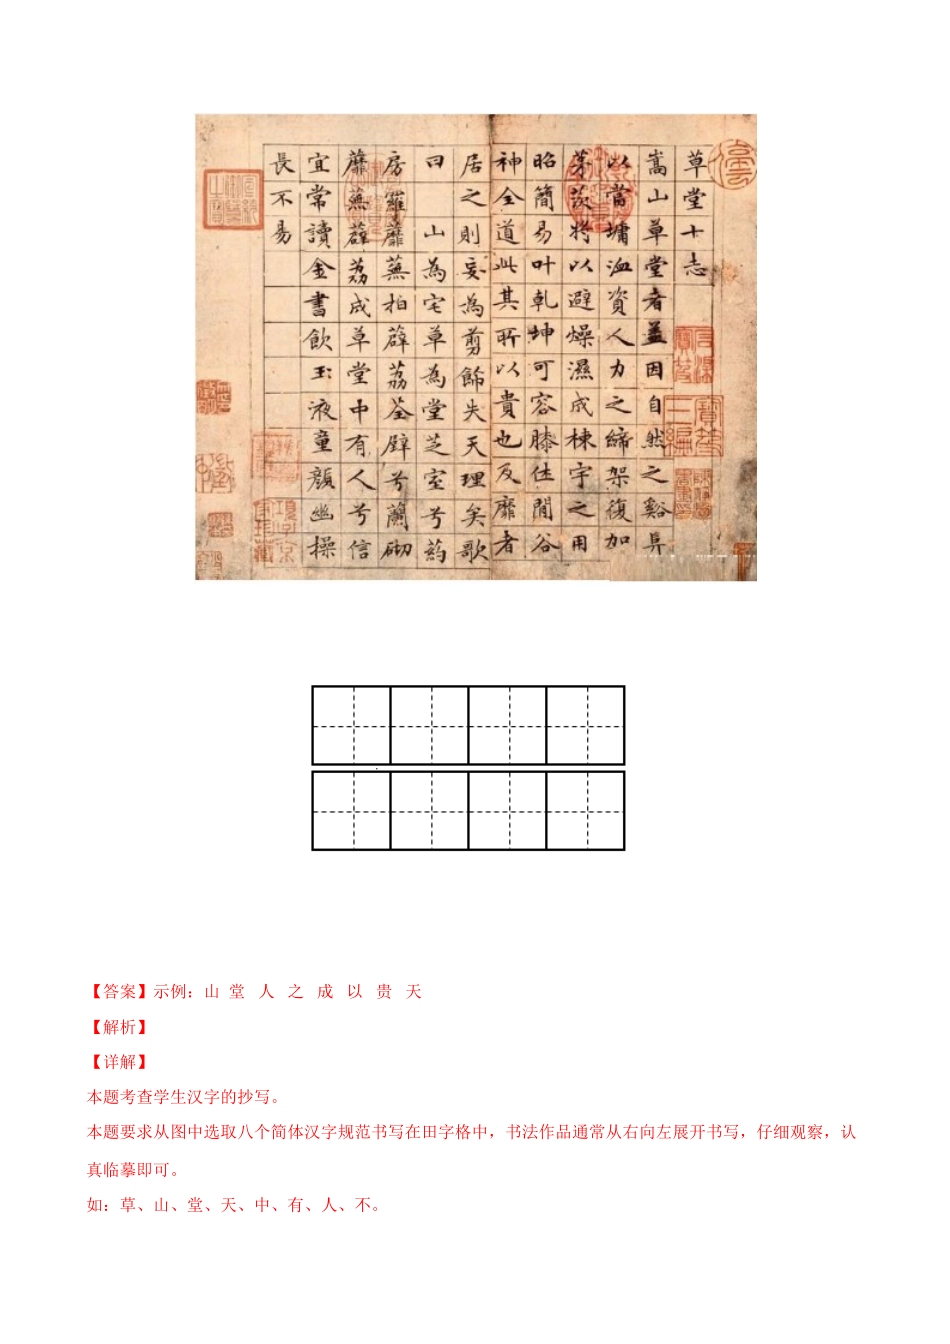 草堂十志
嵩山草堂者盖因自然之谿阜
以當墉洫資人力之締架復加
茅茨将以避燥濕成棟宇之用
昭簡易叶乾坤可容膝休閒谷
神全道此其所以貴也及靡者
居之則妄為剪餙失天理矣歌
曰 山為宅草為堂芝室兮葯
房羅蘼蕪拍薜荔荃壁兮蘭砌
蘼蕪薜荔成草堂中有人兮信
宜常讀金書飲玉液童顏幽操
長不易
【答案】示例：山 堂 人 之 成 以 贵 天
【解析】
【详解】
本题考查学生汉字的抄写。
本题要求从图中选取八个简体汉字规范书写在田字格中，书法作品通常从右向左展开书写，仔细观察，认
真临摹即可。
如：草、山、堂、天、中、有、人、不。